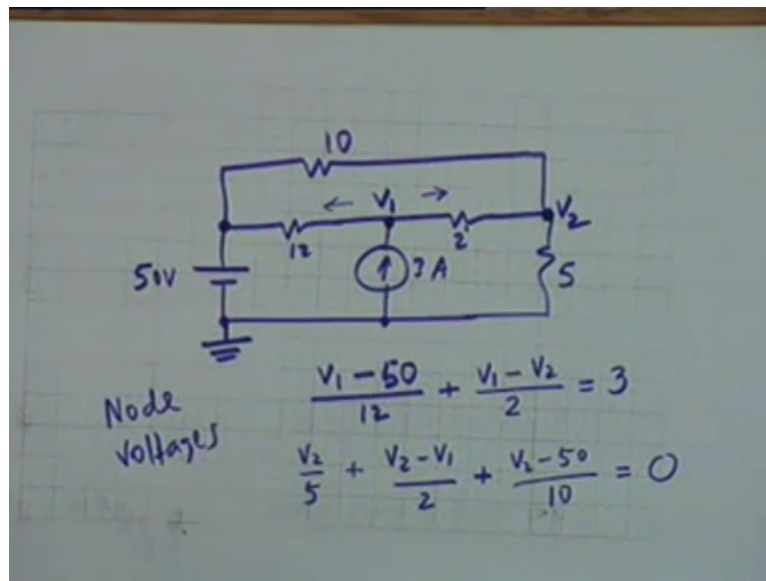 10
V₁ V₂
← →
12 2
50V 3 A 5
Node
voltages
(V₁ − 50)/12 + (V₁ − V₂)/2 = 3
V₂/5 + (V₂ − V₁)/2 + (V₂ − 50)/10 = 0